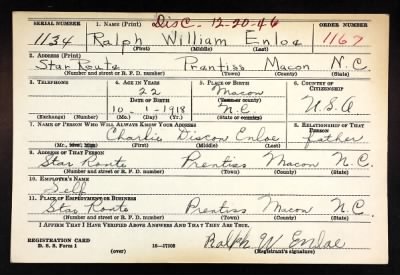 Disc- 12-20-46
SERIAL NUMBER 1. NAME (Print) ORDER NUMBER
1134 Ralph William Enloe 1167
(First) (Middle) (Last)
2. ADDRESS (Print)
Star Route Prentiss Macon N.C.
(Number and street or R. F. D. number) (Town) (County) (State)
3. TELEPHONE 4. AGE IN YEARS 5. PLACE OF BIRTH 6. COUNTRY OF CITIZENSHIP
22 Macon
DATE OF BIRTH (Town or county)
10 - 1 - 1918 N.C. U.S.A
(Exchange) (Number) (Mo.) (Day) (Yr.) (State or country)
7. NAME OF PERSON WHO WILL ALWAYS KNOW YOUR ADDRESS 8. RELATIONSHIP OF THAT PERSON
Charlie Discon Enloe father
(Mr., Mrs., Miss) (First) (Middle) (Last)
9. ADDRESS OF THAT PERSON
Star Route Prentiss Macon N.C.
(Number and street or R. F. D. number) (Town) (County) (State)
10. EMPLOYER'S NAME
Self
11. PLACE OF EMPLOYMENT OR BUSINESS
Star Route Prentiss Macon N.C.
(Number and street or R. F. D. number) (Town) (County) (State)
I AFFIRM THAT I HAVE VERIFIED ABOVE ANSWERS AND THAT THEY ARE TRUE.
REGISTRATION CARD
D. S. S. Form 1 16—17105 Ralph W. Enloe
(over) (Registrant's signature)